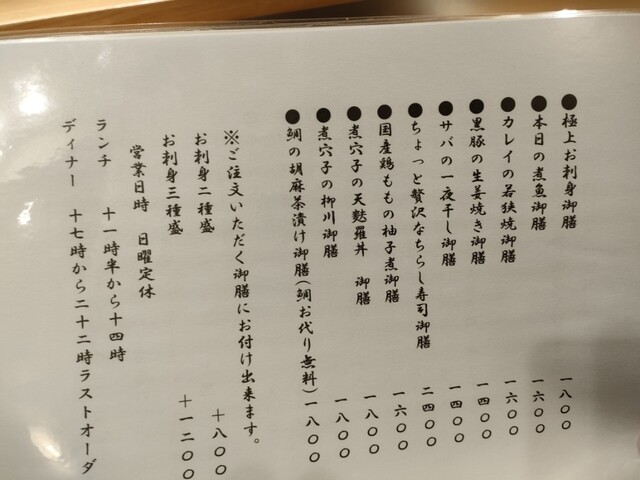 ●極上お刺身御膳 一八〇〇
●本日の煮魚御膳 一六〇〇
●カレイの若狭焼御膳 一六〇〇
●黒豚の生姜焼き御膳 一四〇〇
●サバの一夜干し御膳 一四〇〇
●ちょっと贅沢なちらし寿司御膳 二四〇〇
●国産鶏ももの柚子煮御膳 一六〇〇
●煮穴子の天麩羅丼 御膳 一八〇〇
●煮穴子の柳川御膳 一八〇〇
●鯛の胡麻茶漬け御膳(鯛お代り無料) 一八〇〇
※ご注文いただく御膳にお付け出来ます。
お刺身二種盛 十八〇〇
お刺身三種盛 十一二〇〇
営業日時 日曜定休
ランチ 十一時半から十四時
ディナー 十七時から二十二時ラストオーダ